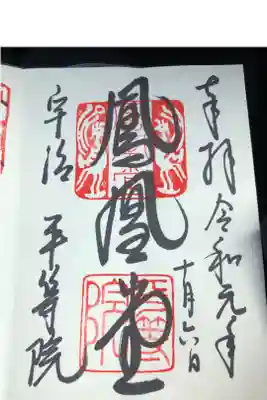 奉拝 令和元年
十月六日
鳳凰堂
宇治 平等院